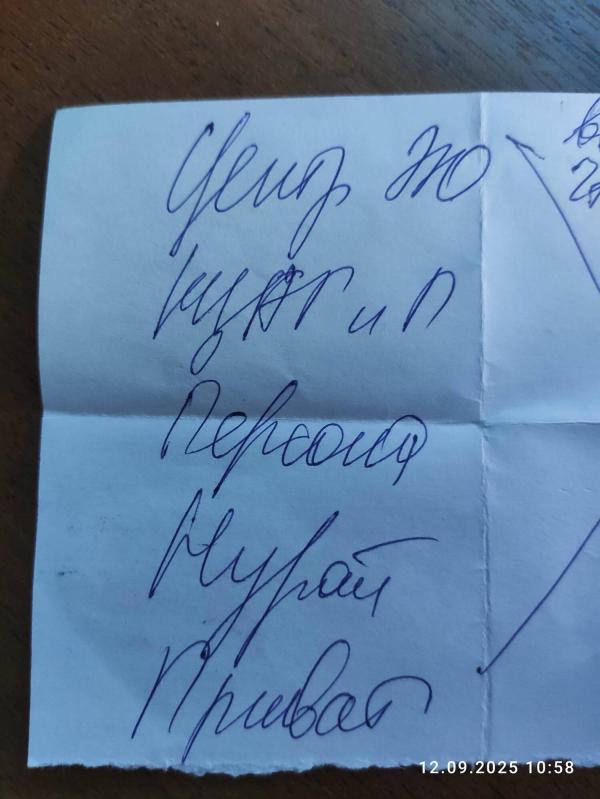 Центр ЭКО
НЦАГиП
Персона
Нурай
Приват
12.09.2025 10:58